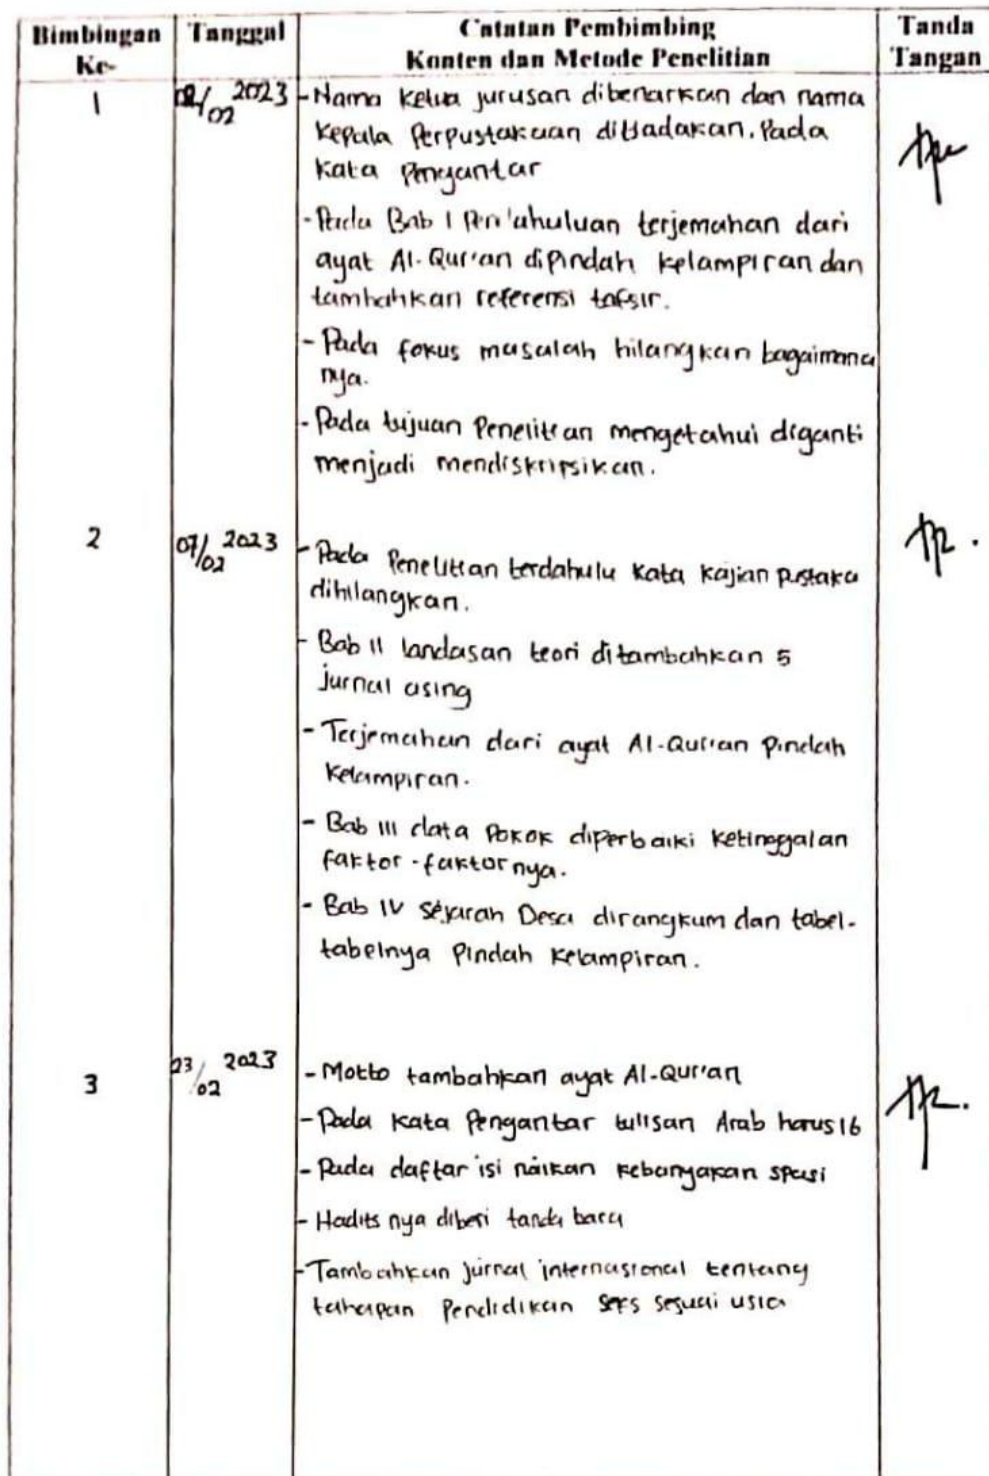 Bimbingan Ke-
Tanggal
Catatan Pembimbing
Konten dan Metode Penelitian
Tanda Tangan
1
02/02 2023
- Nama Ketua jurusan dibenarkan dan nama
Kepala Perpustakaan ditiadakan. Pada
Kata Pengantar
- Pada Bab I Pendahuluan terjemahan dari
ayat Al-Qur'an dipindah kelampiran dan
tambahkan referensi tafsir.
- Pada fokus masalah hilangkan bagaimana
nya.
- Pada tujuan Penelitian mengetahui diganti
menjadi mendiskripsikan.
2
07/02 2023
- Pada Penelitian terdahulu kata kajian pustaka
dihilangkan.
- Bab II landasan teori ditambahkan 5
jurnal asing
- Terjemahan dari ayat Al-Qur'an Pindah
Kelampiran.
- Bab III data Pokok diperbaiki ketinggalan
faktor-faktornya.
- Bab IV sejarah Desa dirangkum dan tabel-
tabelnya Pindah Kelampiran.
3
23/02 2023
- Motto tambahkan ayat Al-Qur'an
- Pada Kata Pengantar tulisan Arab harus 16
- Pada daftar isi naikan kebanyakan spasi
- Hadits nya diberi tanda baca
- Tambahkan jurnal internasional tentang
tahapan Pendidikan Seks sesuai usia